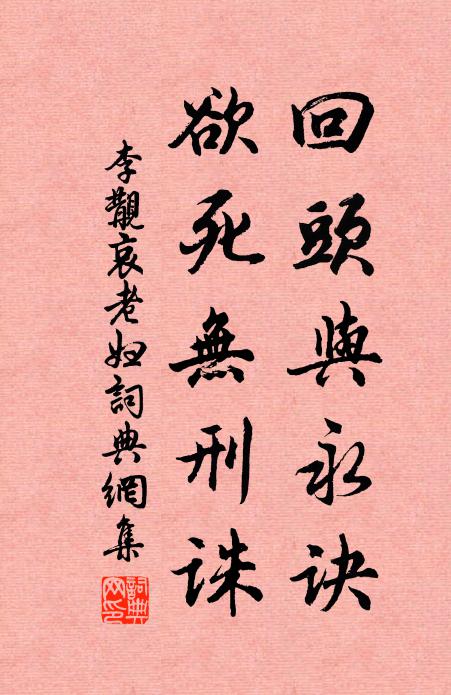 回頭與永訣
欲死無刑誅
李覯哀老婦詞典網集
詞典網印